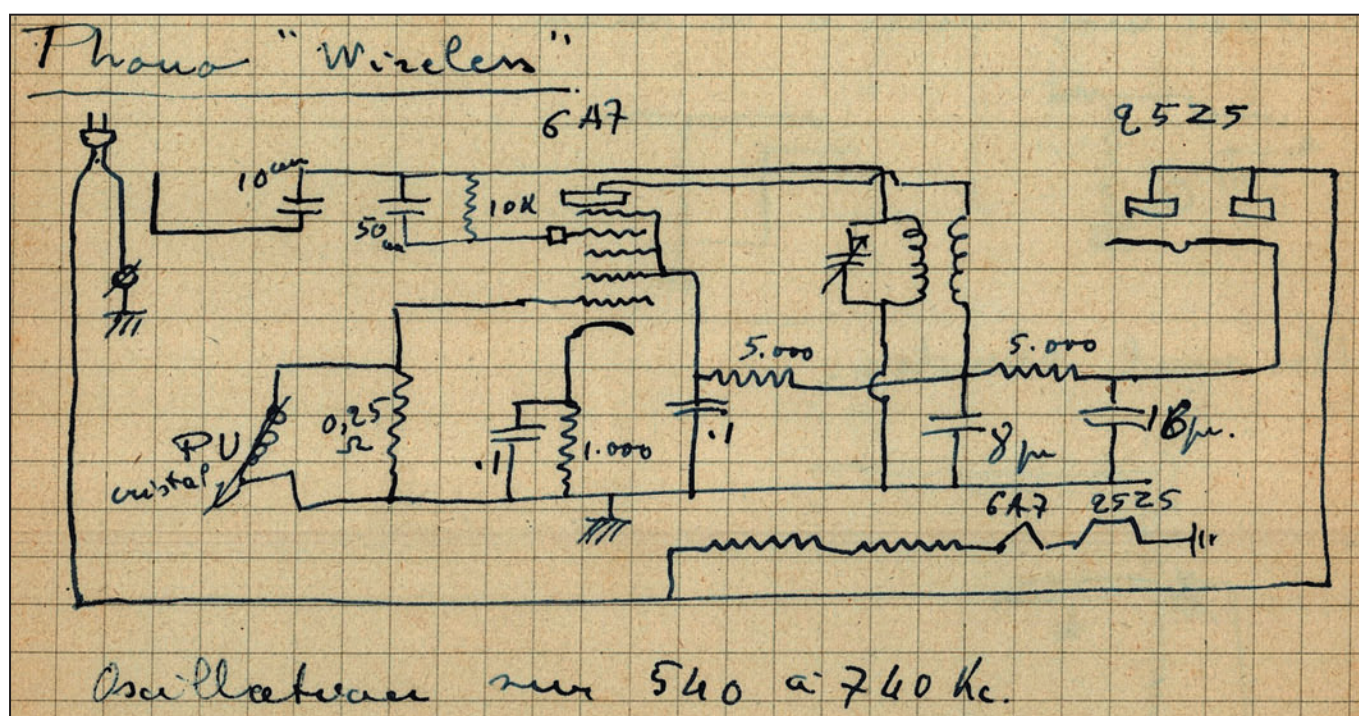 Phono "Wireless"
6A7
25Z5
10 cm
50 cm
10K
5.000
5.000
PU
cristal
0,25
Ω
.1
1.000
.1
8µ
16µ.
6A7 25Z5
Oscillation sur 540 à 740 Kc.